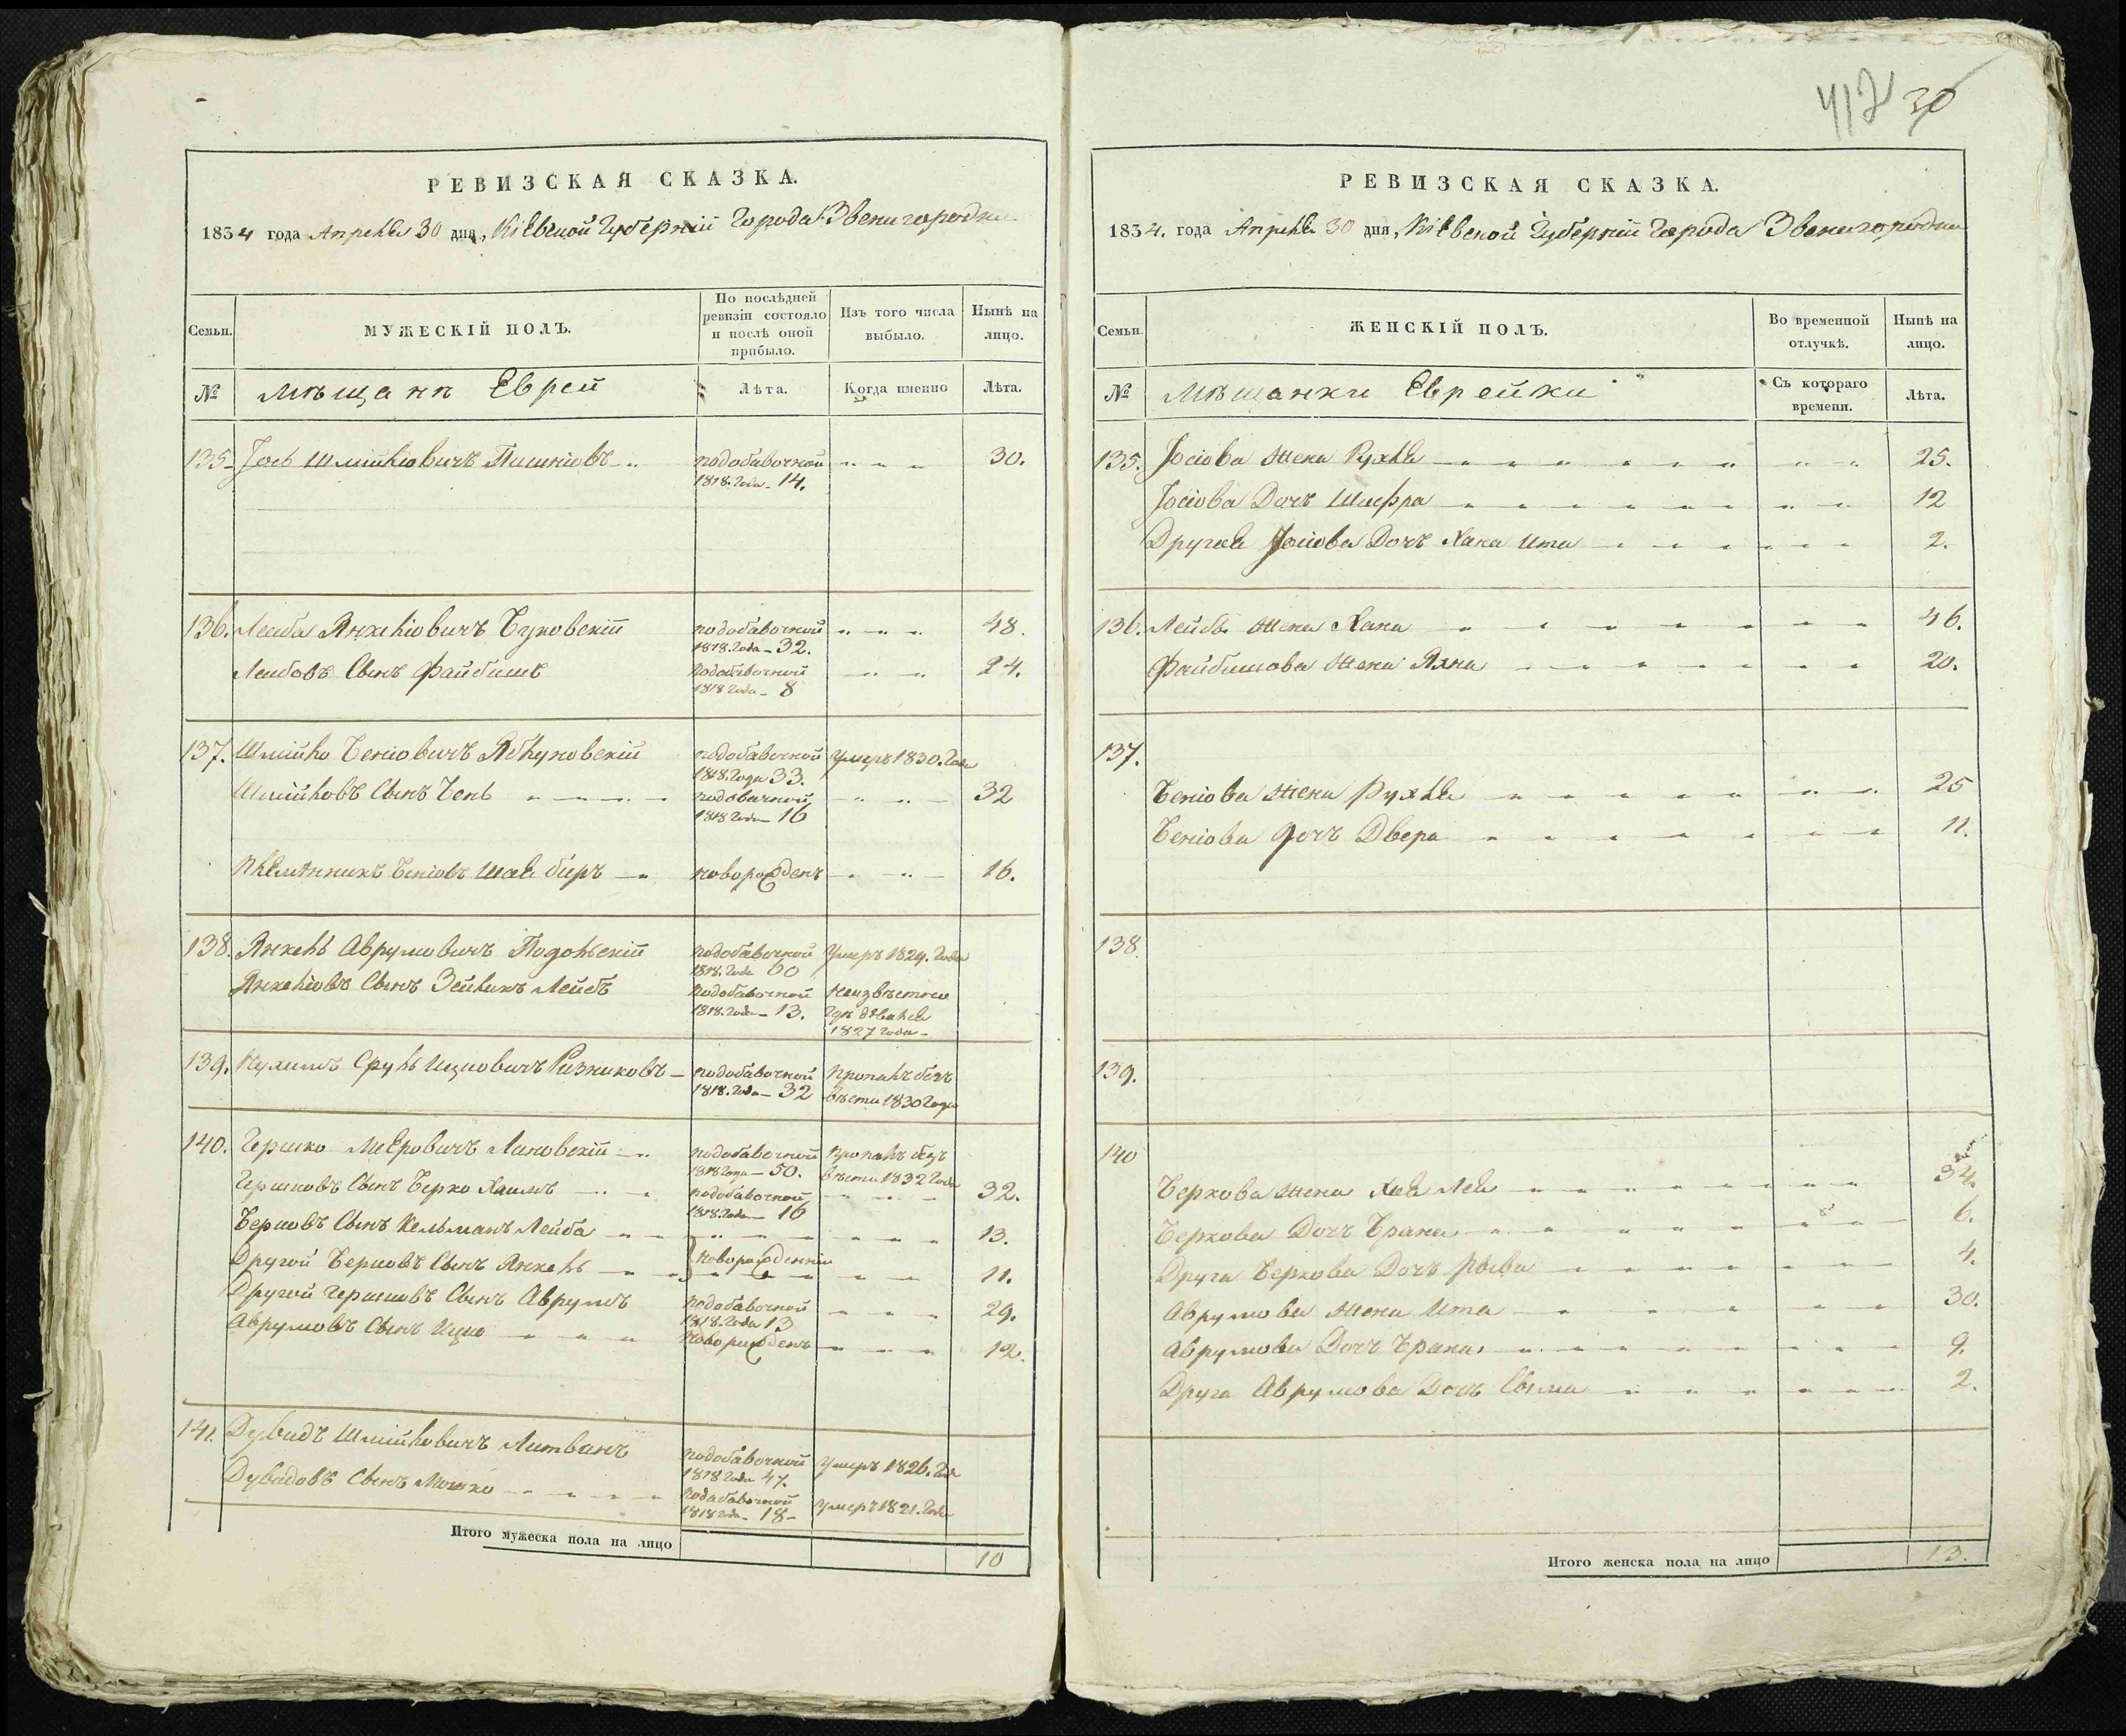 417 30
РЕВИЗСКАЯ СКАЗКА.
1834 года Апреля 30 дня, Кіевской Губерніи Города Звенигородки
Семьи.
МУЖЕСКІЙ ПОЛЪ.
По послѣдней ревизіи состояло и послѣ оной прибыло.
Изъ того числа выбыло.
Нынѣ на лицо.
№ Мѣщанъ Еврей Лѣта. Когда именно Лѣта.
135 Іось Шмійлювичъ подобавочной 30.
1818. года 14.
136. Лейба Янкеліовичъ Буковскій подобавочной 48.
1818. года 32.
Лейбовъ Сынъ Файбишъ подобавочной 24.
1818 года 8
137. Шмійло Беніовичъ Яблуновскій подобавочной Умеръ 1830. года
1818. года 33.
Шмійловъ Сынъ Бень подобавочной 32
1818 года 16
Племянникъ Беніовъ новорожденъ 16.
138. Янкель Аврумовичъ Подольскій подобавочной Умеръ 1824. года
1818. года 60
Янкеліовъ Сынъ Зейликъ Лейбъ подобавочной Неизвѣстно
1818. года 13. гдѣ дѣвался
1827 года
139. Нухимъ Сруль Ицковичъ Ризниковъ подобавочной пропалъ безъ
1818. года 32 вѣсти 1830 года
140. Гершко Мееровичъ Линовскій подобавочной пропалъ безъ
1818 года 50. вѣсти 1832 года
Гершковъ Сынъ Берко Хаимъ подобавочной 32.
1818. года 16
Берковъ Сынъ Кельманъ Лейба 13.
новорожденніи
Другой Берковъ Сынъ Янкель 11.
Другой Гершковъ Сынъ Аврумъ подобавочной 29.
1818. года 13
Аврумовъ Сынъ Ицко новорожденъ 12.
141. Дувидъ Шмійловичъ Литвинъ подобавочной Умеръ 1826. года
1818 года 47.
Дувидовъ Сынъ Мошко подобавочной умеръ 1821. года
1818 года 18
Итого мужеска пола на лицо 10
РЕВИЗСКАЯ СКАЗКА.
1834. года Апреля 30 дня, Кіевской Губерніи Города Звенигородки
Семьи.
ЖЕНСКІЙ ПОЛЪ.
Во временной отлучкѣ.
Нынѣ на лицо.
№ Мѣщанки Еврейки Съ котораго времени. Лѣта.
135. Іосіова жена Рухля 25.
Іосіова Дочъ Шифра 12
Другая Іосіова Дочъ Хана Ита 2.
136. Лейбы жена Хана 46.
Файбишова жена Яхна 20.
137.
Беніова жена Рухля 25
Беніова дочъ Двера 11.
138.
139.
140
Беркова жена Хая Лея 34.
Беркова Дочъ Брана 6.
Друга Беркова Дочъ Рыва 4.
Аврумова жена Ита 30.
Аврумова Дочъ Брана 9.
Друга Аврумова Дочъ Сыма 2.
Итого женска пола на лицо 13.